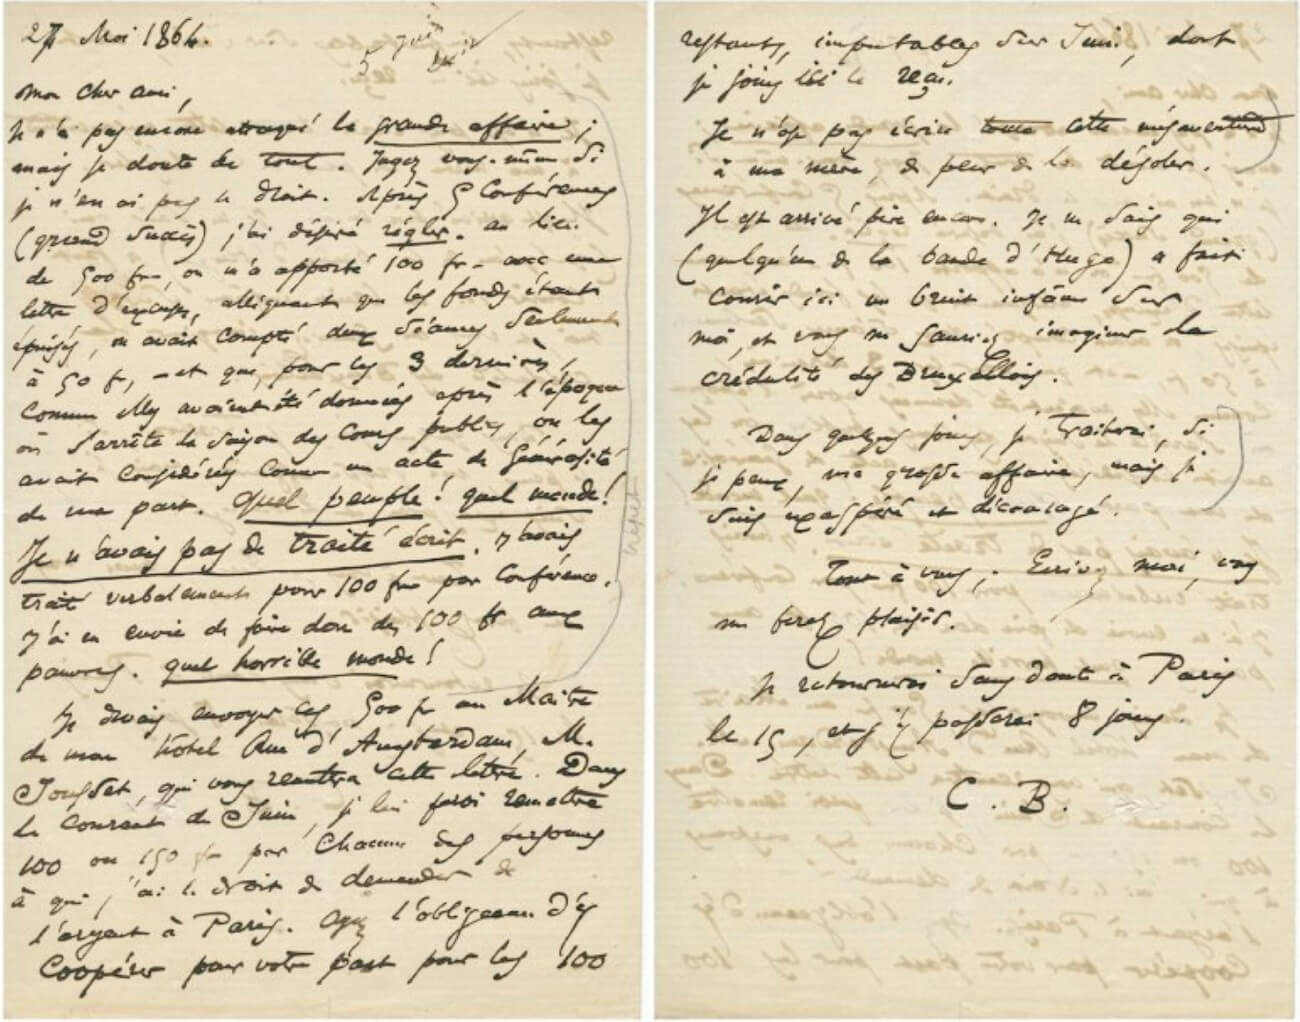 27 Mai 1864.
5 juin
Mon cher ami,
Je n'ai pas encore attaqué la grande affaire ;
mais je doute de tout. Jugez vous-même si
je n'en ai pas le droit. Après 5 Conférences
(grand succès) j'ai désiré régler. au lieu
de 500 fr, on m'a apporté 100 fr - avec une
lettre d'excuses, alléguant que les fonds étant
épuisés, on avait compté deux séances seulement
à 50 fr, - et que, pour les 3 dernières,
comme elles avaient été données après l'époque
où s'arrête la saison des Cours publics, on les
avait considérées comme un acte de générosité
de ma part. Quel peuple ! quel monde !
Je n'avais pas de traité écrit. J'avais
traité verbalement pour 100 fr par Conférence.
J'ai eu envie de faire don des 100 fr aux
pauvres. quel horrible monde !
Je devais envoyer ces 500 fr au Maître
de mon hôtel Rue d'Amsterdam, M.
Jousset, qui vous remettra cette lettre. Dans
le courant de Juin, je lui ferai remettre
100 ou 150 fr par chacune des personnes
à qui j'ai le droit de demander de
l'argent à Paris. Ayez l'obligeance d'y
Coopérer pour votre part pour les 100
restants, imputables sur Juin, dont
je joins ici le reçu.
Je n'ose pas écrire toute cette mésaventure
à ma mère, de peur de la désoler.
Il est arrivé pire encore. Je ne sais qui
(quelqu'un de la bande d'Hugo) a fait
courir ici un bruit infâme sur
moi, et vous ne sauriez imaginer la
crédulité des Bruxellois.
Dans quelques jours, je traiterai, si
je peux, ma grosse affaire, mais je
suis exaspéré et découragé.
Tout à vous ; Ecrivez moi, vous
me ferez plaisir.
Je retournerai sans doute à Paris
le 15, et j'y passerai 8 jours.
C. B.